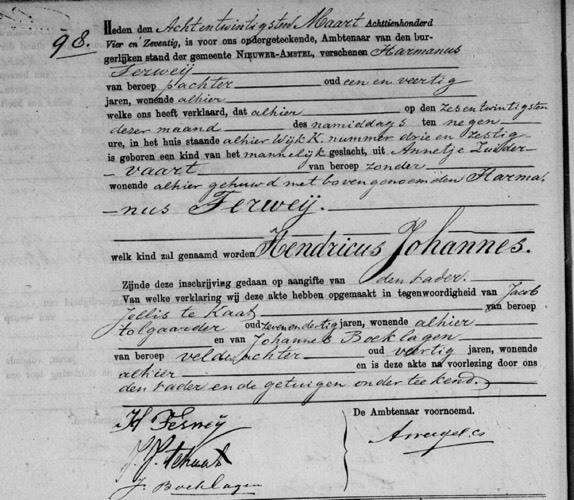 98.
Heden den Achtentwintigsten Maart Achttienhonderd
Vier en Zeventig, is voor ons ondergeteekende, Ambtenaar van den bur-
gerlijken stand der gemeente NIEUWER-AMSTEL, verschenen Harmanus
Ferweij
van beroep pachter oud een en veertig
jaren, wonende alhier
welke ons heeft verklaard, dat alhier op den zesentwintigsten
dezer maand des namiddags ten negen
ure, in het huis staande alhier Wijk K. nummer drie en zestig
is geboren een kind van het mannelijk geslacht, uit Annetje Zuider-
-vaart van beroep zonder
wonende alhier gehuwd met bovengenoemden Harma-
-nus Ferweij.
welk kind zal genaamd worden Hendricus Johannes.
Zijnde deze inschrijving gedaan op aangifte van den vader.
Van welke verklaring wij deze akte hebben opgemaakt in tegenwoordigheid van Jacob
Jellis te Kaat van beroep
tolgaarder oud zevenendertig jaren, wonende alhier
en van Johannes Boeklagen
van beroep veldwachter oud veertig jaren, wonende
alhier en is deze akte na voorlezing door ons
den vader en de getuigen onderteekend.
De Ambtenaar voornoemd.
H Ferweij
J. J. te Kaat
J. Boeklagen